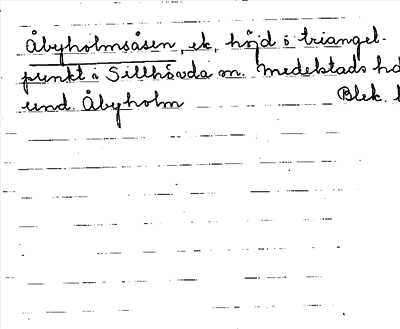 Åbyholmsåsen, ek, höjd o triangel-
punkt å Sillhövda sn. Medelstads hd
und. Åbyholm Blek. l